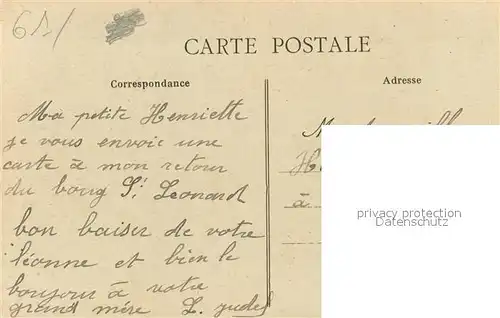 CARTE POSTALE
Correspondance
Adresse
Ma petite Henriette
je vous envoie une
carte à mon retour
du bourg St Leonard
bon baiser de votre
léonne et bien le
bonjour à votre
grand mère L.
à
privacy protection
Datenschutz